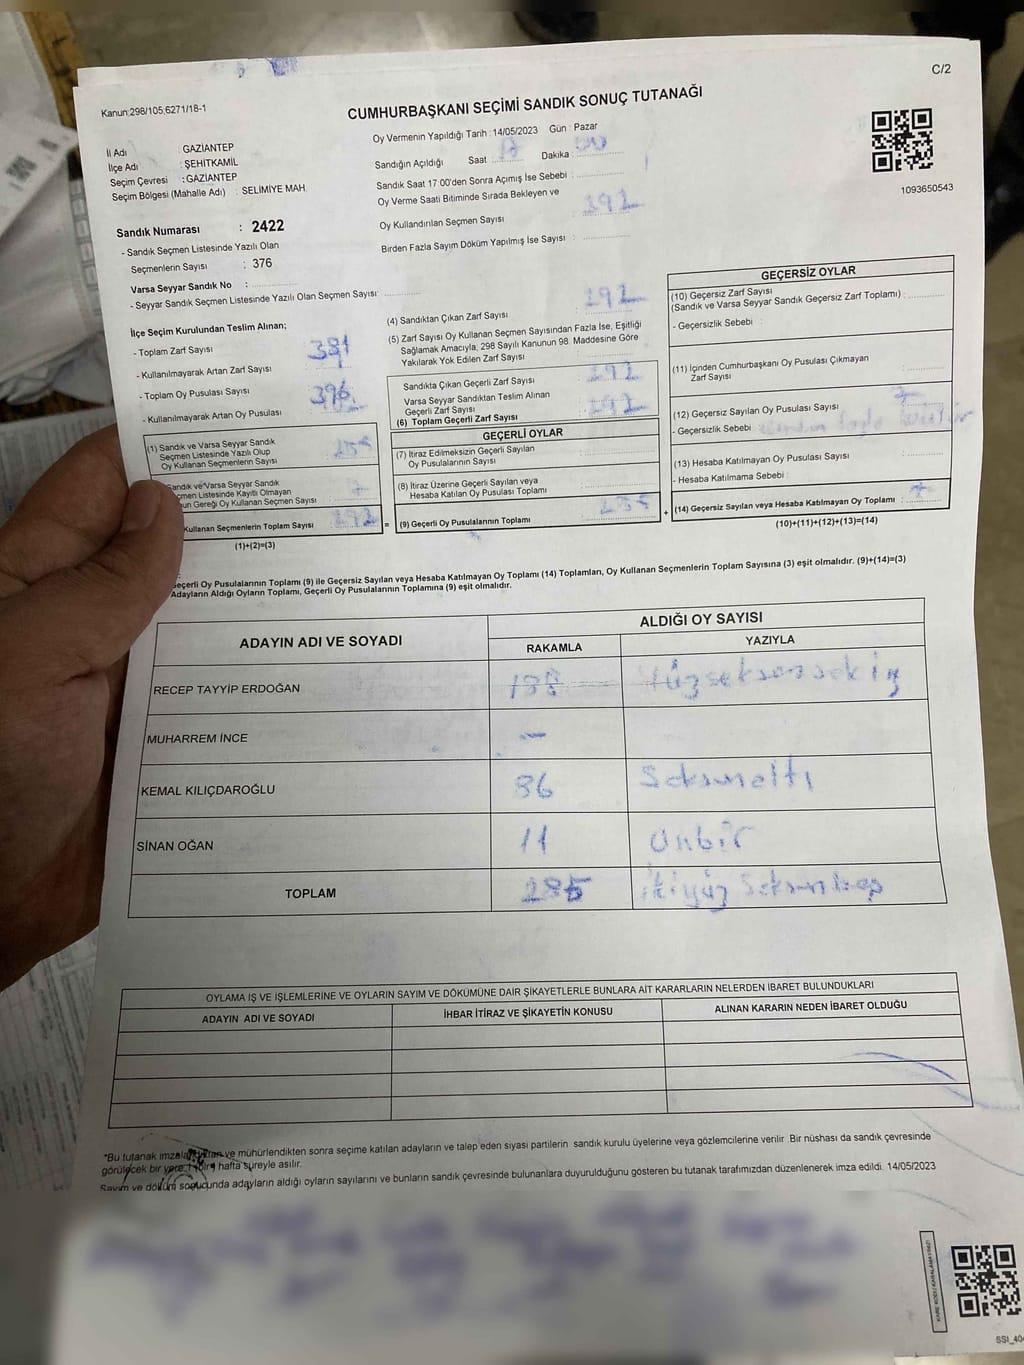 C/2
Kanun:298/105;6271/18-1
CUMHURBAŞKANI SEÇİMİ SANDIK SONUÇ TUTANAĞI
Oy Vermenin Yapıldığı Tarih :14/05/2023 Gün : Pazar
İl Adı : GAZİANTEP
İlçe Adı : ŞEHİTKAMİL
Seçim Çevresi : GAZİANTEP
Seçim Bölgesi (Mahalle Adı) : SELİMİYE MAH.
Sandığın Açıldığı Saat : 17 Dakika : 00
Sandık Saat 17:00'den Sonra Açımış İse Sebebi :
Oy Verme Saati Bitiminde Sırada Bekleyen ve
Oy Kullandırılan Seçmen Sayısı : 292
Birden Fazla Sayım Döküm Yapılmış İse Sayısı :
1093650543
Sandık Numarası : 2422
- Sandık Seçmen Listesinde Yazılı Olan
Seçmenlerin Sayısı : 376
Varsa Seyyar Sandık No :
- Seyyar Sandık Seçmen Listesinde Yazılı Olan Seçmen Sayısı:
İlçe Seçim Kurulundan Teslim Alınan;
- Toplam Zarf Sayısı
- Kullanılmayarak Artan Zarf Sayısı
- Toplam Oy Pusulası Sayısı 396
- Kullanılmayarak Artan Oy Pusulası
(1) Sandık ve Varsa Seyyar Sandık
Seçmen Listesinde Yazılı Olup
Oy Kullanan Seçmenlerin Sayısı
Sandık ve Varsa Seyyar Sandık
Listesinde Kayıtlı Olmayan
Gereği Oy Kullanan Seçmen Sayısı 7
Kullanan Seçmenlerin Toplam Sayısı 292 =
(1)+(2)=(3)
(4) Sandıktan Çıkan Zarf Sayısı : 292
(5) Zarf Sayısı Oy Kullanan Seçmen Sayısından Fazla İse, Eşitliği
Sağlamak Amacıyla, 298 Sayılı Kanunun 98. Maddesine Göre
Yakılarak Yok Edilen Zarf Sayısı :
Sandıkta Çıkan Geçerli Zarf Sayısı : 292
Varsa Seyyar Sandıktan Teslim Alınan
Geçerli Zarf Sayısı
(6) Toplam Geçerli Zarf Sayısı : 292
GEÇERLİ OYLAR
(7) İtiraz Edilmeksizin Geçerli Sayılan
Oy Pusulalarının Sayısı :
(8) İtiraz Üzerine Geçerli Sayılan veya
Hesaba Katılan Oy Pusulası Toplamı :
(9) Geçerli Oy Pusulalarının Toplamı : 285 +
GEÇERSİZ OYLAR
(10) Geçersiz Zarf Sayısı
(Sandık ve Varsa Seyyar Sandık Geçersiz Zarf Toplamı) :
- Geçersizlik Sebebi :
(11) İçinden Cumhurbaşkanı Oy Pusulası Çıkmayan
Zarf Sayısı :
(12) Geçersiz Sayılan Oy Pusulası Sayısı : 7
- Geçersizlik Sebebi :
(13) Hesaba Katılmayan Oy Pusulası Sayısı :
- Hesaba Katılmama Sebebi :
(14) Geçersiz Sayılan veya Hesaba Katılmayan Oy Toplamı : 7
(10)+(11)+(12)+(13)=(14)
Geçerli Oy Pusulalarının Toplamı (9) ile Geçersiz Sayılan veya Hesaba Katılmayan Oy Toplamı (14) Toplamları, Oy Kullanan Seçmenlerin Toplam Sayısına (3) eşit olmalıdır. (9)+(14)=(3)
Adayların Aldığı Oyların Toplamı, Geçerli Oy Pusulalarının Toplamına (9) eşit olmalıdır.
ADAYIN ADI VE SOYADI
ALDIĞI OY SAYISI
RAKAMLA YAZIYLA
RECEP TAYYİP ERDOĞAN 188 Yüzseksensekiz
MUHARREM İNCE -
KEMAL KILIÇDAROĞLU 86 Seksenaltı
SİNAN OĞAN 11 Onbir
TOPLAM 285 ikiyüz Seksenbeş
OYLAMA İŞ VE İŞLEMLERİNE VE OYLARIN SAYIM VE DÖKÜMÜNE DAİR ŞİKAYETLERLE BUNLARA AİT KARARLARIN NELERDEN İBARET BULUNDUKLARI
ADAYIN ADI VE SOYADI İHBAR İTİRAZ VE ŞİKAYETİN KONUSU ALINAN KARARIN NEDEN İBARET OLDUĞU
*Bu tutanak ve mühürlendikten sonra seçime katılan adayların ve talep eden siyasi partilerin sandık kurulu üyelerine veya gözlemcilerine verilir. Bir nüshası da sandık çevresinde
görülecek bir yere hafta süreyle asılır.
Sayım ve döküm sonucunda adayların aldığı oyların sayılarını ve bunların sandık çevresinde bulunanlara duyurulduğunu gösteren bu tutanak tarafımızdan düzenlenerek imza edildi. 14/05/2023